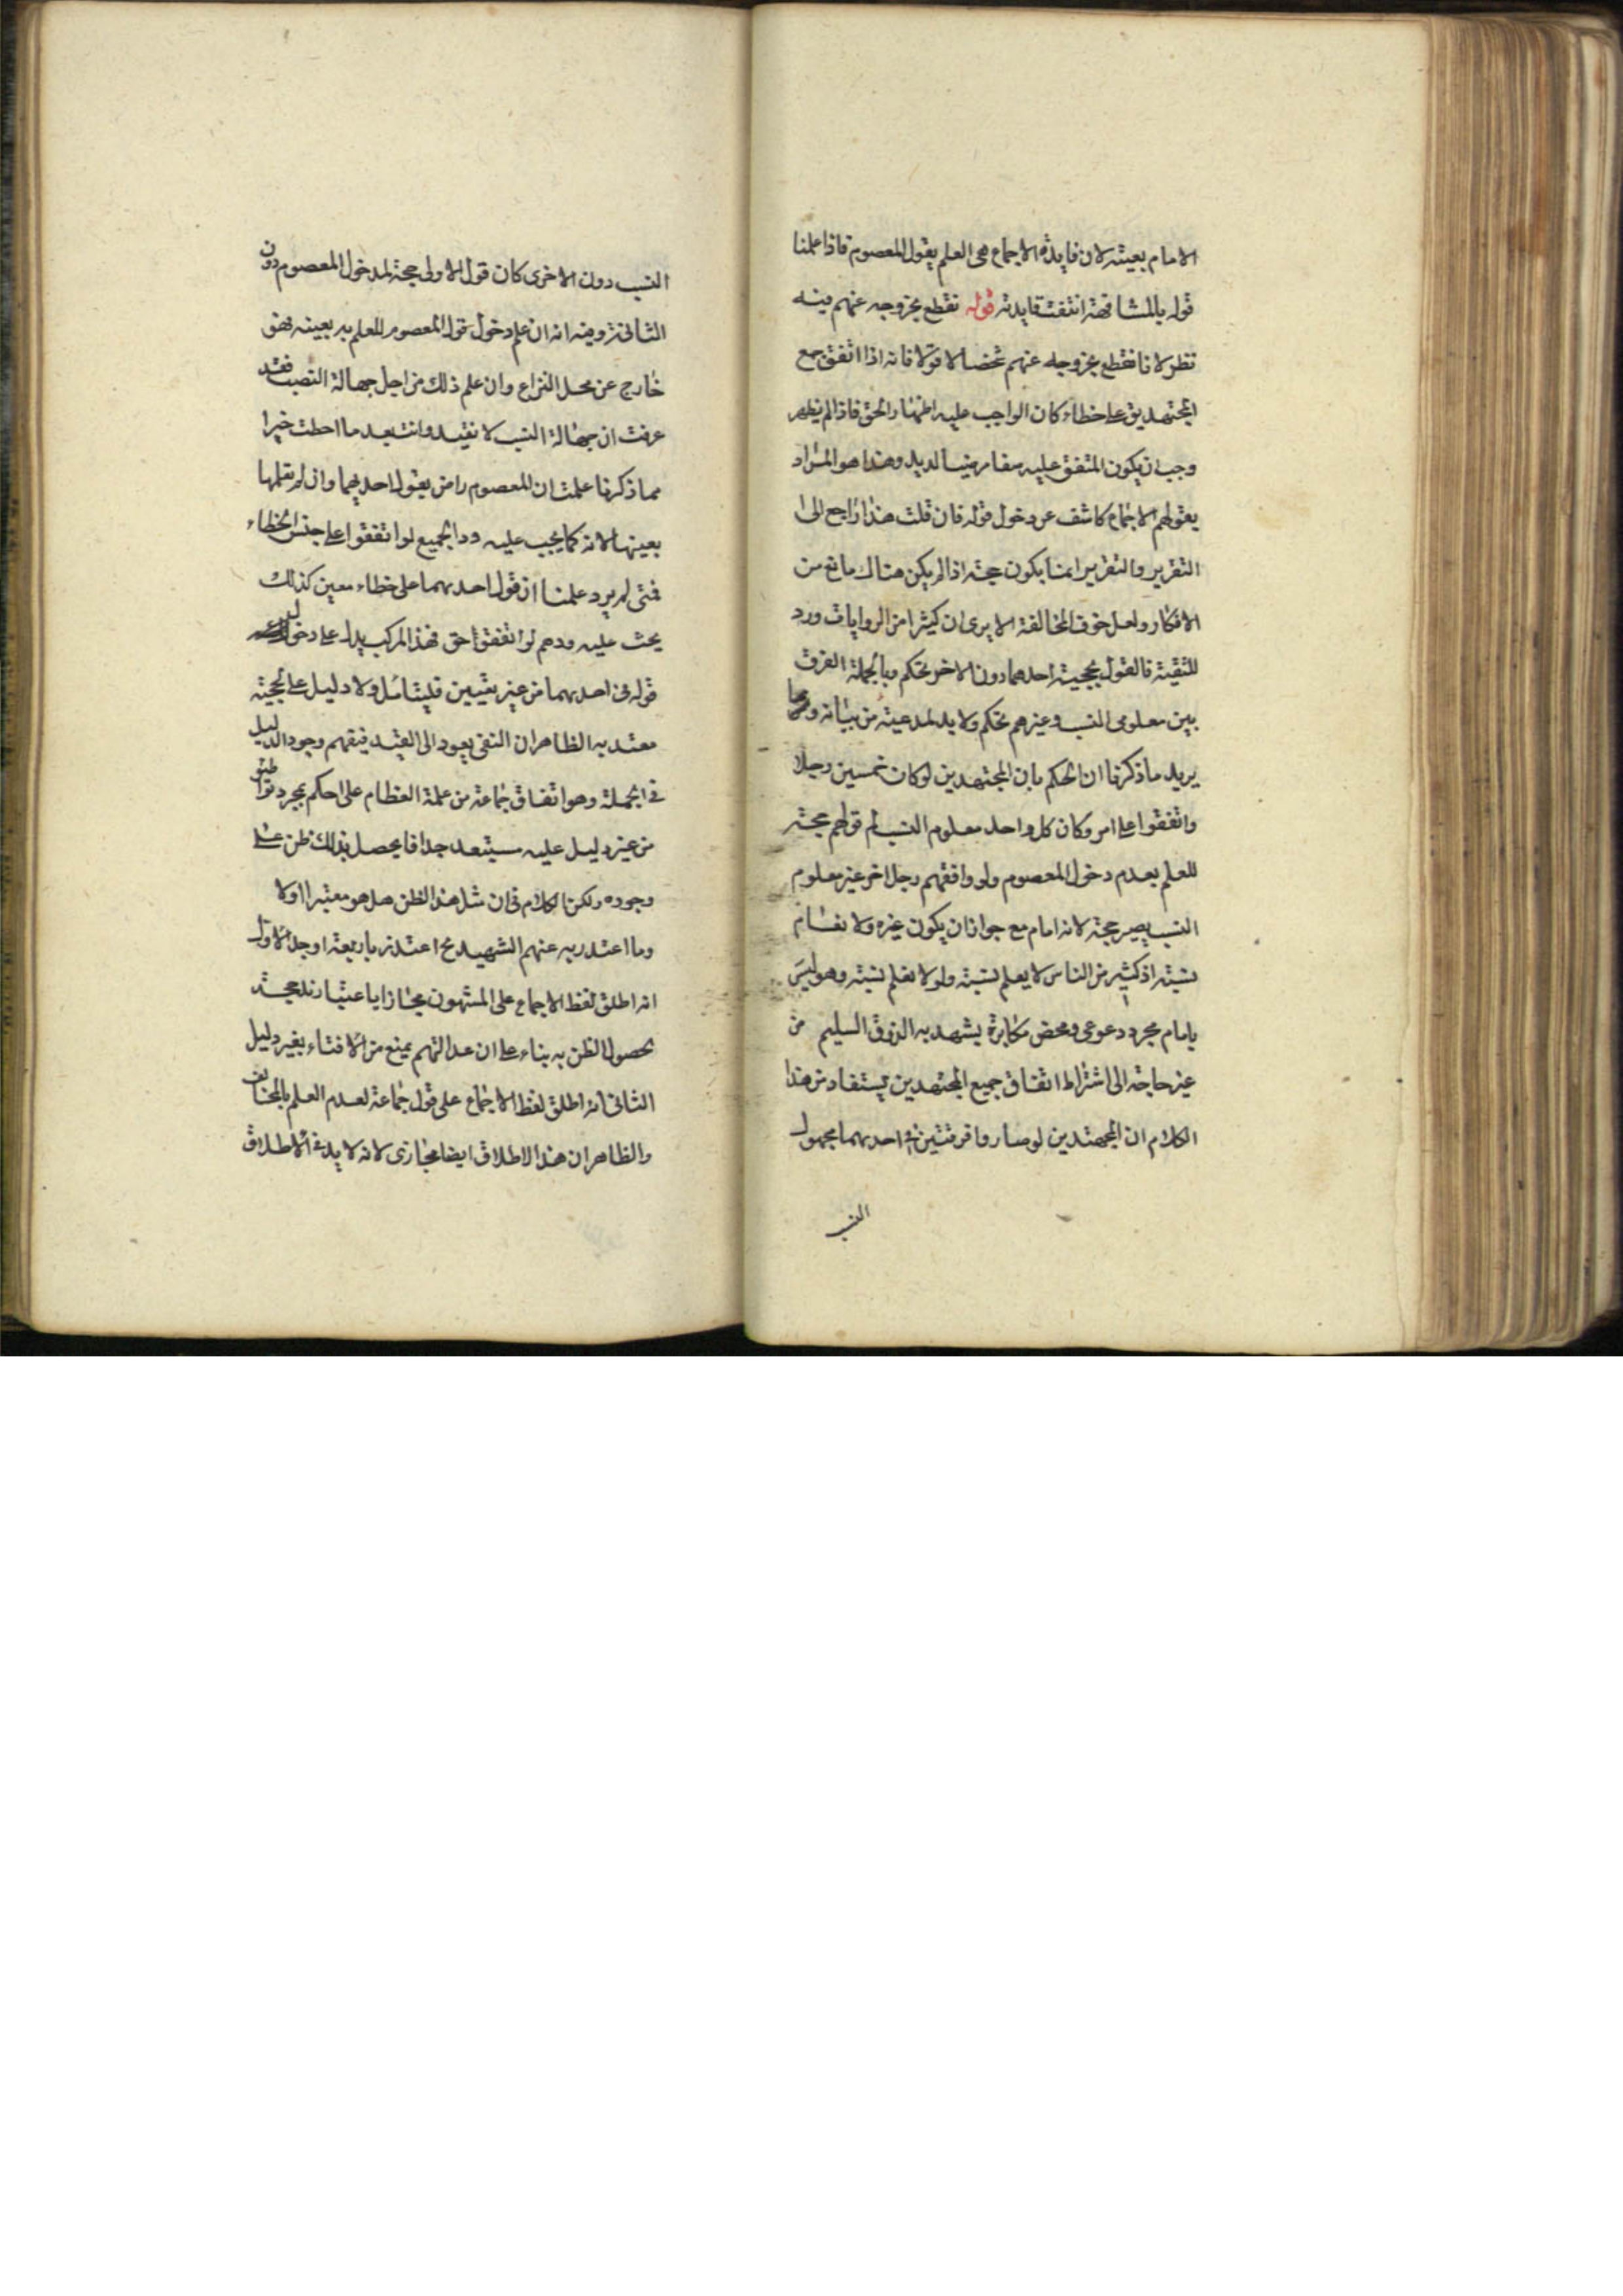 الامام بعينه لان فايدة الاجماع هى العلم بقول المعصوم فاذا علمنا
قوله بالمشافهة انتفت فايدته قوله نقطع بخروجه عنهم فيه
نظر لانا نقطع بخروجه عنهم شخصا لا قولا فانه اذا اتفق جمع
المجتهدين على خطاء كان الواجب عليه اظهار الحق فاذا لم يظهر
وجب ان يكون المتفق عليه مرضيا لديه وهذا هو المراد
بقولهم الاجماع كاشف عن دخول قوله فان قلت هذا راجع الى
التقرير والتقرير انما يكون حجة اذا لم يكن هناك مانع من
الانكار ولعل خوف المخالفة الا يرى ان كثيرا من الروايات ورد
للتقية فالقول بحجية احدهما دون الاخر تحكم وبالجملة الفرق
بين معلومى النسب وغيرهم تحكم ولا بد لمدعيه من بيانه
يريد ما ذكرنا ان الحكم بان المجتهدين لو كان خمسين رجلا
واتفقوا على امر وكان كل واحد معلوم النسب لم قولهم حجة
للعلم بعدم دخول المعصوم ولو وافقهم رجل اخر غير معلوم
النسب يصير حجة لانه امام مع جواز ان يكون غيره ولا نعلم
نسبته اذ كثير من الناس لا يعلم نسبته ولو لا نعلم نسبته وهو ليس
بامام مجرد دعوى ومحض مكابرة يشهد به الذوق السليم من
غير حاجة الى اشتراط اتفاق جميع المجتهدين يستفاد من هذا
الكلام ان المجتهدين لو صاروا فرقتين فى احديهما مجهول
النسب
النسب دون الاخرى كان قول الاولى حجة لدخول المعصوم دون
الثانية وفيه انه ان علم دخول قول المعصوم للعلم به بعينه فهو
خارج عن محل النزاع وان علم ذلك من اجل جهالة النسب فقد
عرفت ان جهالة النسب لا تفيد وانت بعد ما احطت خبرا
مما ذكرنا علمت ان المعصوم راض بقول احديهما وان لم نعلمها
بعينها لانه كما يجب عليه رد الجميع لو اتفقوا على جنس الخطاء
فمتى لم يرد علمنا ان قول احديهما على خطاء معين كذلك
يجب عليه ردهم لو اتفقوا حق فهذا المركب يدل على دخول
قوله فى احديهما من غير تعيين فليتامل ولا دليل على الحجية
معتد به الظاهر ان النفى يعود الى القيد فيفهم وجود الدليل
فى الجملة وهو اتفاق جماعة من عملة العظام على الحكم بمجرد تواطئو
من غير دليل عليه مستبعد جدا فايحصل بذلك ظن على
وجوده ولكن الكلام فى ان مثل هذا الظن هل هو معتبر او لا
وما اعتذر به عنهم الشهيد رح اعتذر باربعة اوجه الاول
انه اطلق لفظ الاجماع على المشهور مجازا باعتبار حجة
بحصول الظن به بناء على ان عدالتهم يمنع من الافتاء بغير دليل
الثانى انه اطلق لفظ الاجماع على قول جماعة لعدم العلم بالمخالف
والظاهر ان هذا الاطلاق ايضا مجازى لانه لا بد فى الاطلاق